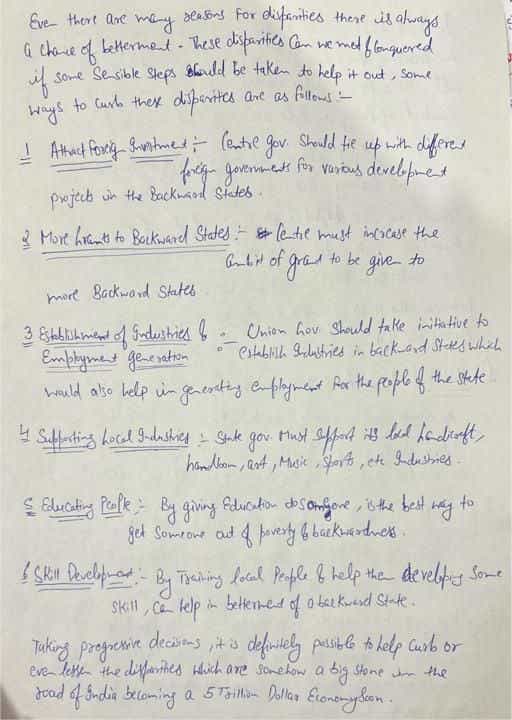 Even there are many reasons for disparities there is always
a chance of betterment. These disparities can we met & conquered
if some Sensible Steps should be taken to help it out, Some
ways to curb these disparities are as follows :-
1 Attract Foreign Investment :- Centre gov. Should tie up with different
foreign governments for various development
projects in the Backward States.
2 More Grants to Backward States :- Centre must increase the
ambit of grant to be given to
more Backward States
3 Establishment of Industries & :- Union Gov. Should take initiative to
Employment generation establish Industries in backward States which
would also help in generating employment for the people of the State.
4 Supporting Local Industries :- State gov. Must Support its local handicraft,
handloom, art, Music, Sports, etc Industries.
5 Educating People :- By giving Education to Someone, is the best way to
get Someone out of poverty & backwardness.
6 Skill Development :- By Training local People & help them developing Some
Skill, Can help in betterment of a backward State.
Taking progressive decisions, it is definitely possible to help Curb or
even lessen the disparities which are somehow a big stone in the
road of India becoming a 5 Trillion Dollar Economy Soon.